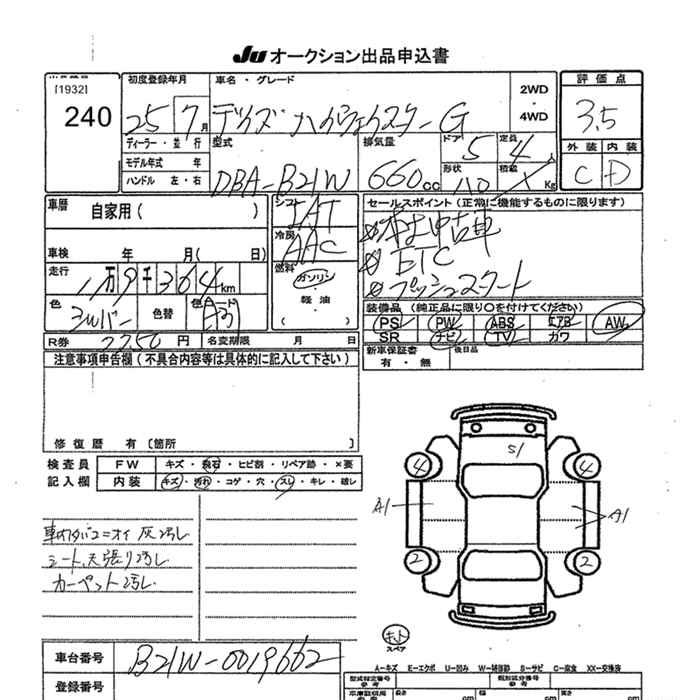 Ju オークション出品申込書
[1932]
240
初度登録年月
25 7月
車名・グレード
デイズ ハイウェイスター G
2WD・4WD
評価点
3.5
ディーラー・並行
モデル年式 年
ハンドル 左・右
型式
DBA-B21W
排気量
660cc
ドア
5
定員
4人
形状
積載
Kg
外装 内装
C D
車歴
自家用( )
車検 年 月( 日)
走行
1万9千364km
色
シルバー
色替
色コード
シフト
IAT
冷房
AAC
燃料
ガソリン
・
軽油
・
( )
セールスポイント(正常に機能するものに限ります)
ETC
プッシュスタート
装備品(純正品に限り○を付けてください)
PS PW ABS エアB AW
SR ナビ TV カワ
新車保証書
有・無
後日品
R券 円
名変期限 月 日
注意事項申告欄(不具合内容等は具体的に記入して下さい)
修復歴 有〔箇所 〕
検査員
記入欄
FW キズ・飛石・ヒビ割・リペア跡・×要
内装 キズ・汚れ・コゲ・穴・スレ・キレ・破レ
シート、天張り汚レ
カーペット汚レ
S1
4 4
A1 A1
2 2
キット
スペア
車台番号
B21W-0019662
登録番号
A-キズ E-エクボ U-凹み W-補修跡 S-サビ C-腐食 XX-交換済
型式指定番号
類別区分番号
長さ cm
cm
高さ cm